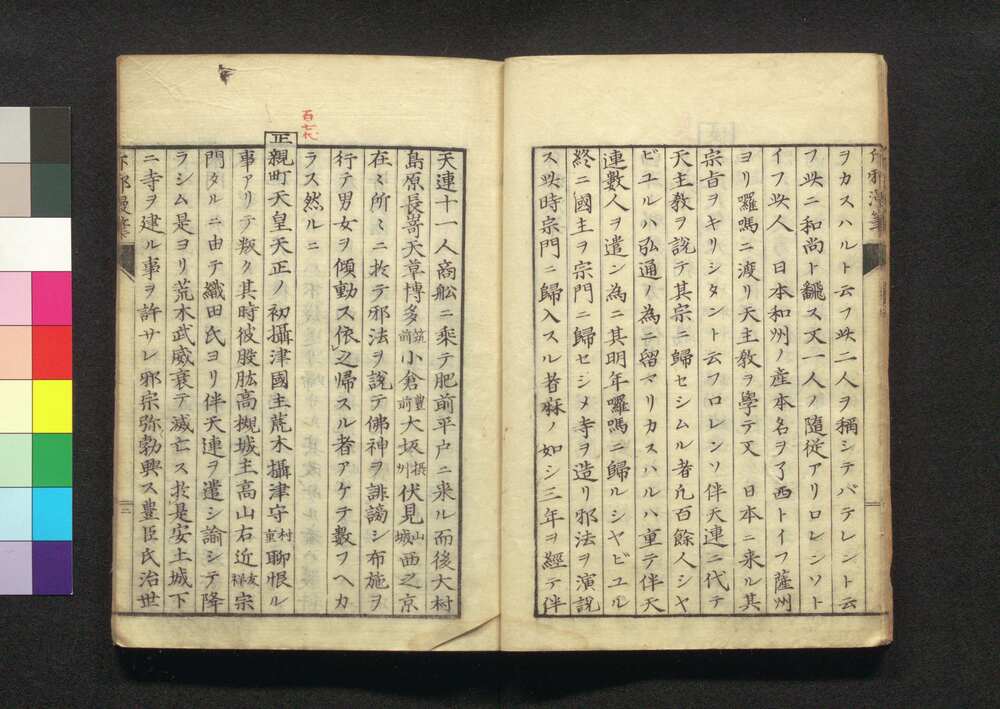 ヲカスハルト云フ此二人ヲ稱シテバテレント云
フ此ニ和尚ト飜ス又一人ノ隨從アリロレンソト
イフ此人 日本和州ノ産本名ヲ了西トイフ薩州
ヨリ囉嗎ニ渡リ天主教ヲ學テ又 日本ニ来ル其
宗旨ヲキリシタント云フロレンソ伴天連ニ代テ
天主教ヲ説テ其宗ニ歸セシムル者凡百餘人シヤ
ビユルハ弘通ノ為ニ留マリカスハルハ重テ伴天
連數人ヲ遣ン為ニ其明年囉嗎ニ歸ルシヤビユル
終ニ國主ヲ宗門ニ歸セシメ寺ヲ造リ邪法ヲ演説
ス此時宗門ニ歸入スル者麻ノ如シ三年ヲ經テ伴
天連十一人商舩ニ乗テ肥前平戸ニ来ル而後大村
島原長嵜天草博多筑前小倉豊前大坂摂州伏見山城西之京
在々所々ニ於テ邪法ヲ説テ佛神ヲ誹謗シ布施ヲ
行テ男女ヲ傾動ス依之帰スル者アケテ數フヘカ
ラス然ルニ
百七代
正親町天皇天正ノ初攝津國主荒木攝津守村重聊恨ル
事アリテ叛ク其時彼股肱高槻城主高山右近友祥宗
門タルニ由テ織田氏ヨリ伴天連ヲ遣シ諭シテ降
ラシム是ヨリ荒木武威衰テ滅亡ス於是安土城下
ニ寺ヲ建ル事ヲ許サレ邪宗弥勃興ス豊臣氏治世
三